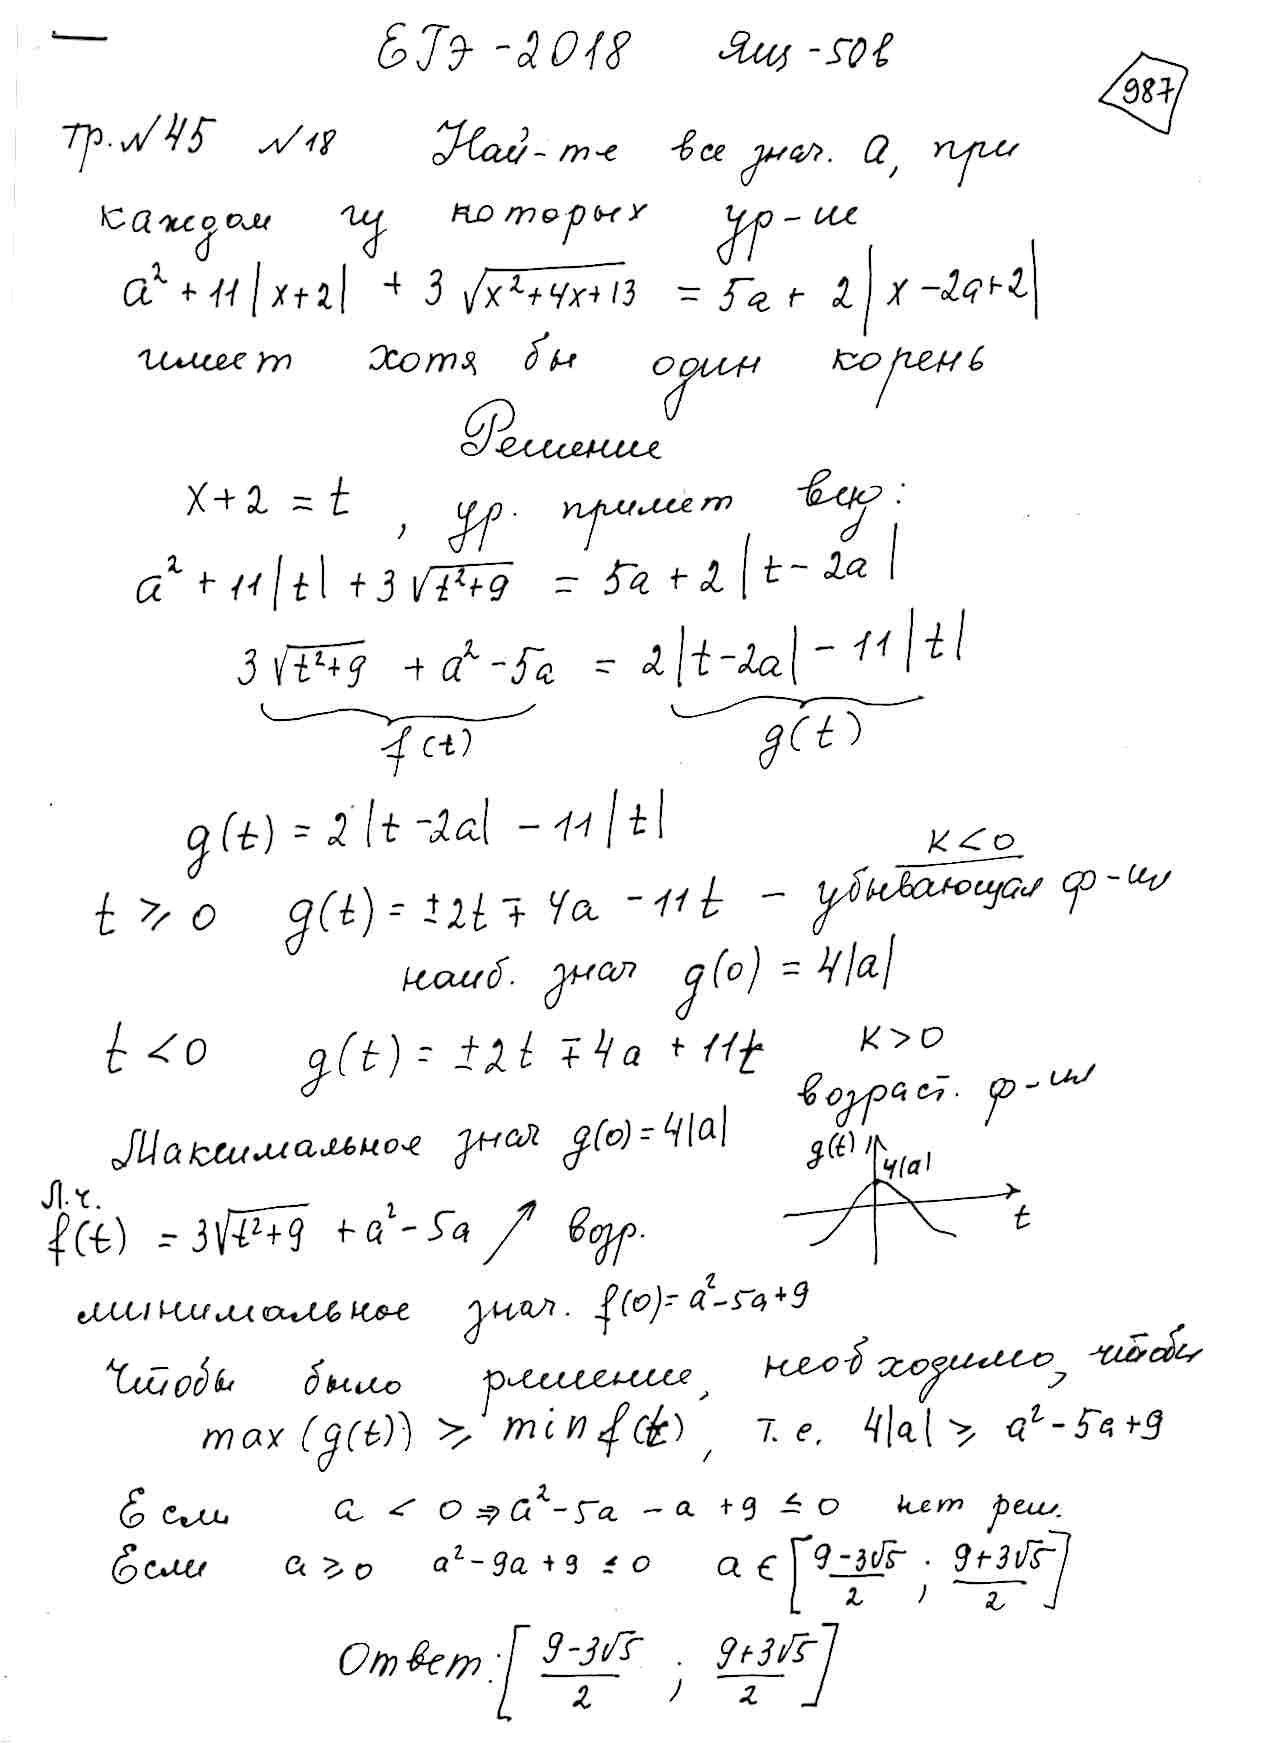 ЕГЭ-2018 Ящ-50в
987
тр.№45 №18 Най-те все знач. a, при
каждом из которых ур-ие
a² + 11|x+2| + 3√(x²+4x+13) = 5a + 2|x-2a+2|
имеет хотя бы один корень
Решение
x+2 = t, ур. примет вид:
a² + 11|t| + 3√(t²+9) = 5a + 2|t-2a|
3√(t²+9) + a² - 5a = 2|t-2a| - 11|t|
f(t) g(t)
g(t) = 2|t-2a| - 11|t|
K<0
t ⩾ 0 g(t) = ±2t ∓ 4a - 11t - убывающая ф-ия
наиб. знач g(0) = 4|a|
t < 0 g(t) = ±2t ∓ 4a + 11t K>0
возраст. ф-ия
Максимальное знач g(0)=4|a|
g(t) 4|a| t
Л.ч.
f(t) = 3√(t²+9) + a² - 5a ↗ возр.
минимальное знач. f(0)=a²-5a+9
Чтобы было решение, необходимо, чтобы
max(g(t)) ⩾ min f(t), т.е. 4|a| ⩾ a²-5a+9
Если a < 0 ⇒ a²-5a -a +9 ≤ 0 нет реш.
Если a ⩾ 0 a²-9a+9 ≤ 0 a ∈ [(9-3√5)/2 ; (9+3√5)/2]
Ответ: [(9-3√5)/2 ; (9+3√5)/2]